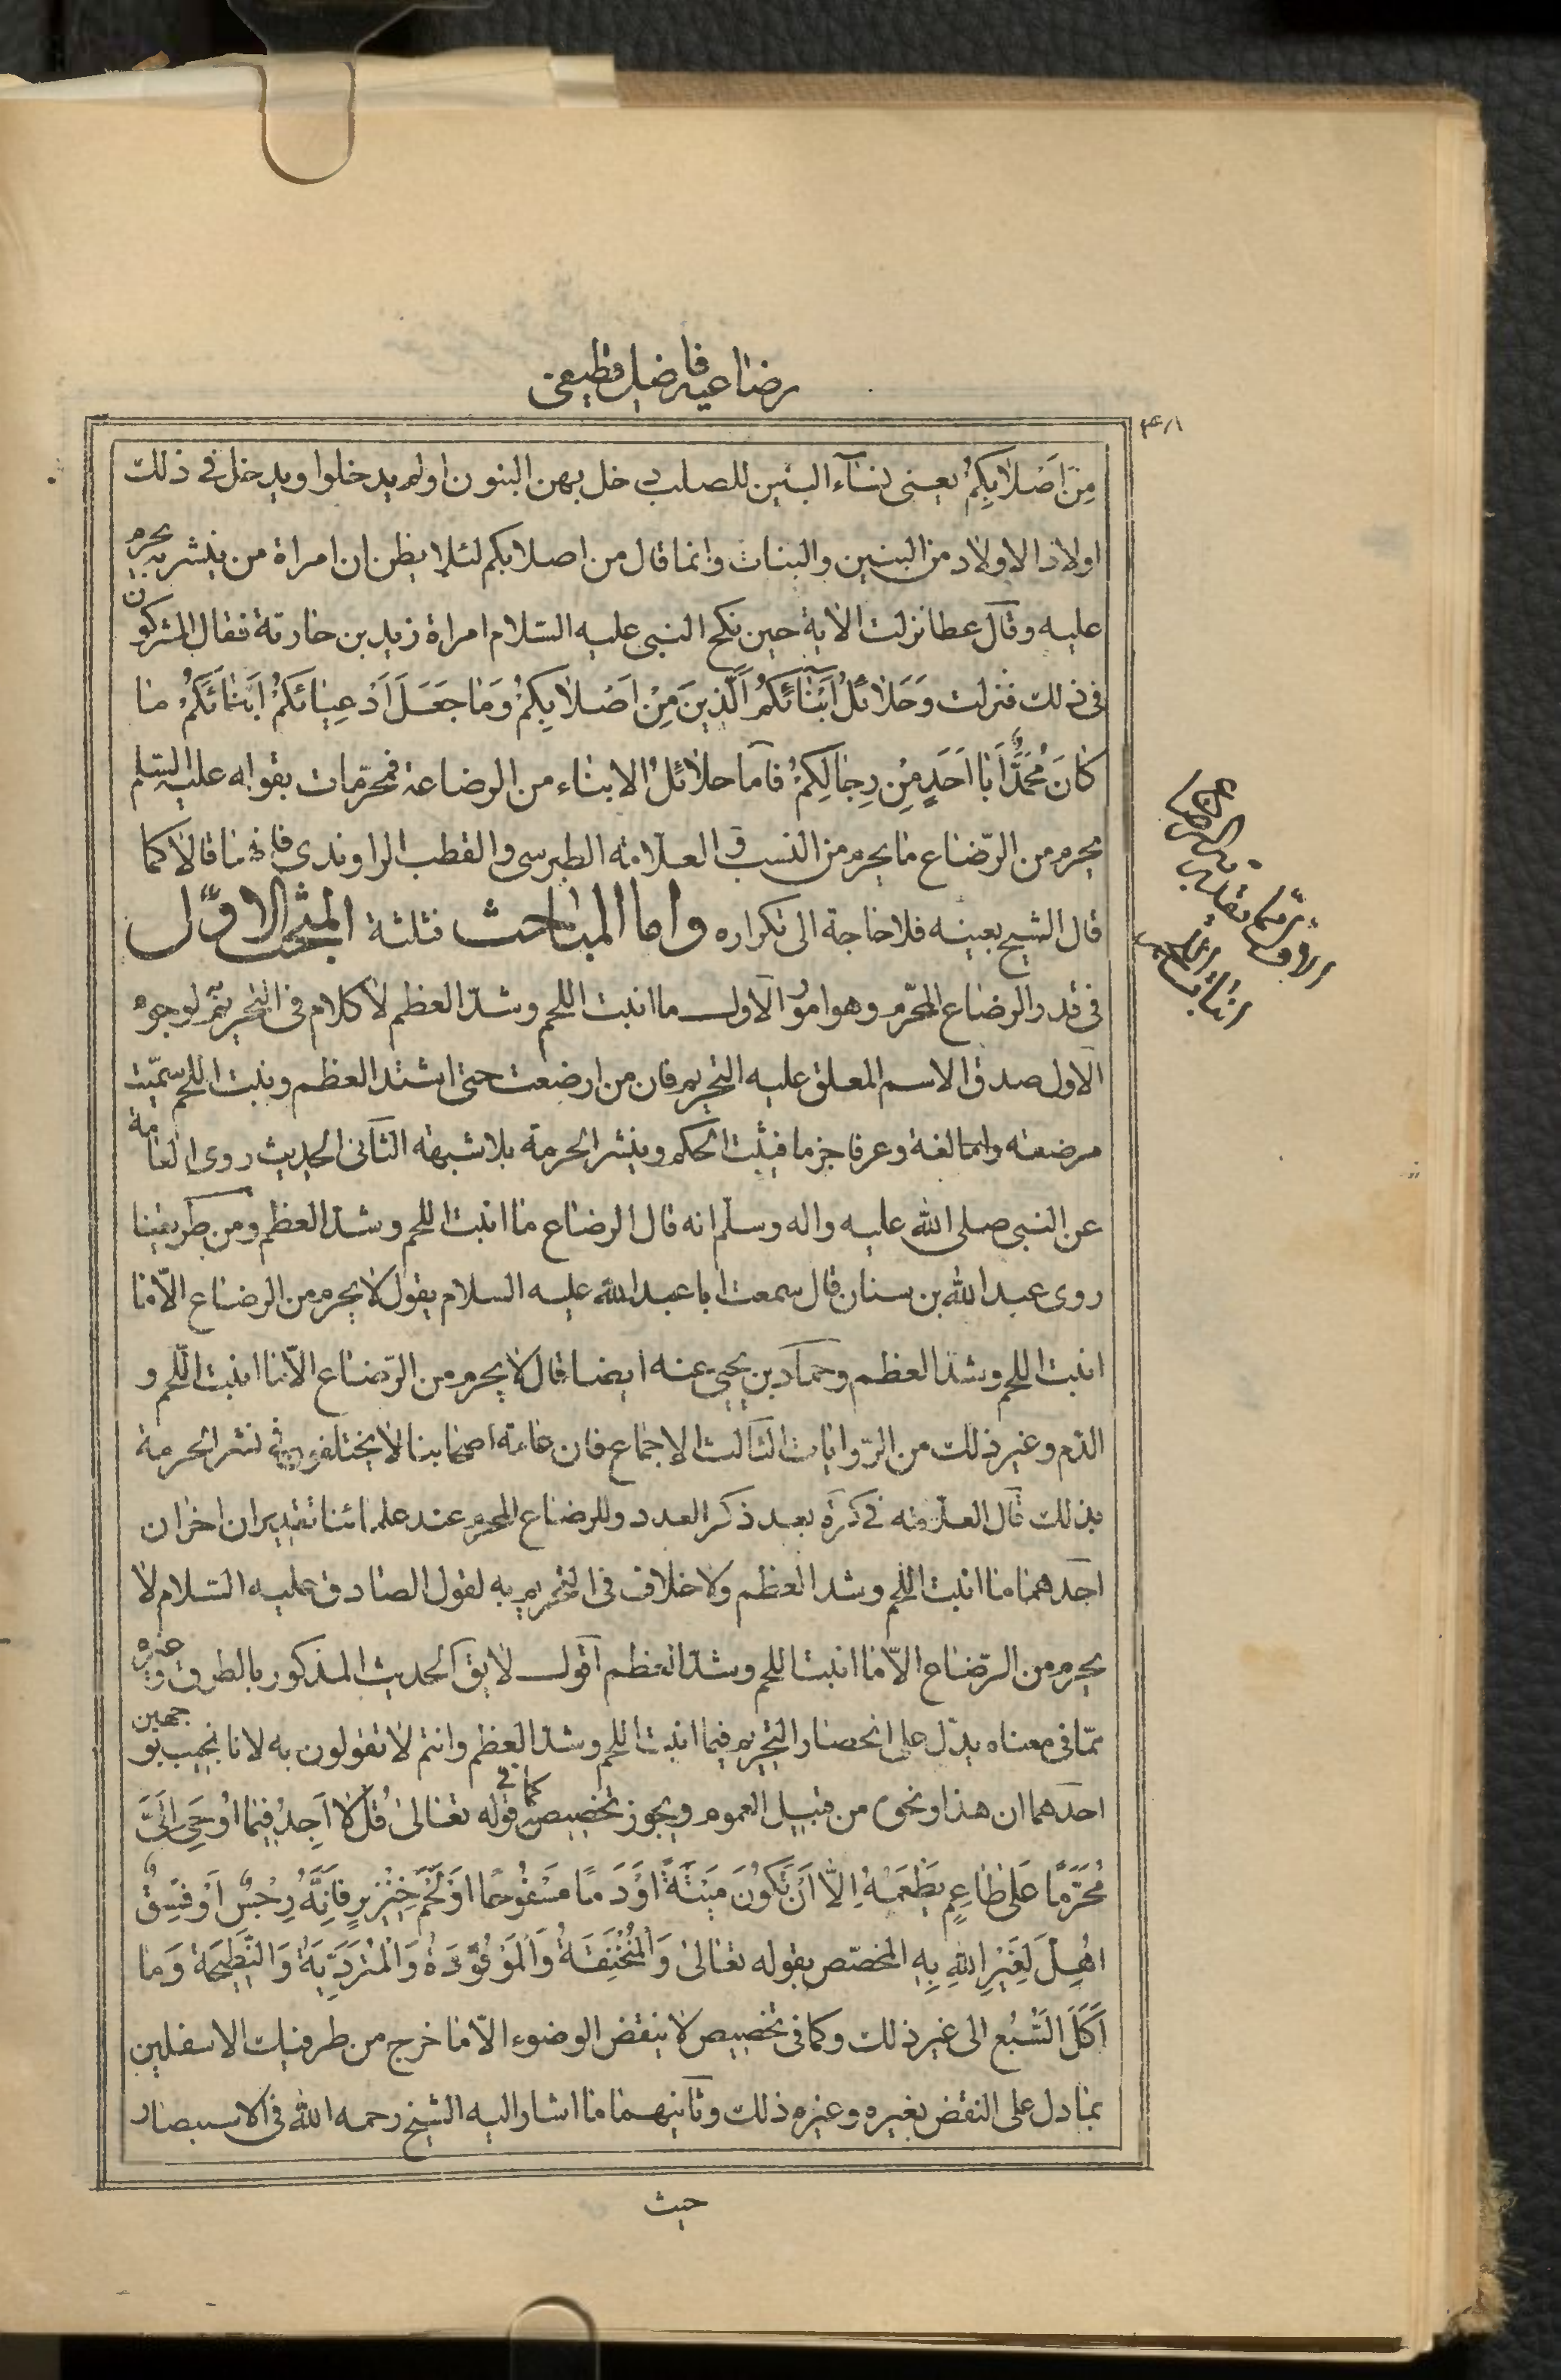 رضاعیه فاضل قطیفی
مِنْ اَصْلابِكُمْ یعنی نساء البنین للصلب دخل بهن البنون اولم یدخلوا ویدخل فی ذلك
اولاد الاولاد من البنین والبنات وانما قال من اصلابكم لئلا یظن ان امراة من ینشر به یحرم
علیه وقال عطا نزلت الایة حین نكح النبی علیه السّلام امراة زید بن حارثة فقال المشركون
فی ذلك فنزلت وَحَلائلُ اَبْنائكُمُ الَّذِینَ مِنْ اَصْلابِكُمْ وَمَا جَعَلَ اَدْعِیائَكُمْ اَبْنائَكُمْ ما
كانَ مُحَمَّدٌ اَبا اَحَدٍ مِنْ رِجالِكُمْ فاما حلائلُ الابناء من الرضاعة فمحرّمات بقوله علیه السّلم
یحرم من الرّضاع ما یحرم من النسب ق العلامة الطبرسی والقطب الراوندی فانهما قالا كما
قال الشیخ بعینه فلا حاجة الی تكراره واما المباحث فثلثة المبحث الاوّل
فی قدر الرضاع المحرّم وهو امور الاول ما انبت اللحم وشدّ العظم لا كلام فی التحریم ثم لوجوه
الاول صدق الاسم المعلق علیه التحریم فان من ارضعت حتی اشتد العظم ونبت اللحم سمّیت
مرضعة واما لغة وعرفا جزما فیثبت الحكم وینشر الحرمة بلا شبهة الثانی الحدیث روی العامة
عن النبی صلی الله علیه واله وسلم انه قال الرضاع ما انبت اللحم وشدّ العظم ومن طریقنا
روی عبد الله بن سنان قال سمعت ابا عبد الله علیه السلام یقول لا یحرم من الرضاع الّا ما
انبت اللحم وشدّ العظم وحماد بن یحیی عنه ایضا قال لا یحرم من الرّضاع الّا ما انبت اللّحم و
الدّم وغیر ذلك من الرّوایات الثالث الاجماع فان عامة اصحابنا لا یختلفون فی نشر الحرمة
بذلك قال العلّامة فی كرة بعد ذكر العدد وللرضاع المحرم عند علمائنا تقدیران اخران
احدهما ما انبت اللحم وشد العظم ولا خلاف فی التحریم به لقول الصادق علیه السّلام لا
یحرم من الرّضاع الّا ما انبت اللحم وشدّ العظم اقول لا یق الحدیث المذكور بالطرق وغیره
ممّا فی معناه یدلّ علی انحصار التحریم فیما انبت اللحم وشدّ العظم وانتم لا تقولون به لانا نجیب بوجهین
احدهما ان هذا ونحوه من قبیل العموم ویجوز تخصیصه كما فی قوله تعالی قُلْ لا اَجِدُ فِیما اوُحِیَ اِلَیَّ
مُحَرَّمًا عَلی طاعِمٍ یَطْعَمُهُ اِلّا اَنْ تَكُونَ مَیْتَةً اَوْ دَمًا مَسْفُوحًا اَوْ لَحْمَ خِنْزِیرٍ فَاِنَّهُ رِجْسٌ اَوْ فِسْقٌ
اهُِلَّ لِغَیْرِ اللهِ بِهِ المخصّص بقوله تعالی وَالْمُنْخَنِقَةُ وَالْمَوْقُوذَةُ وَالْمُتَرَدِّیَةُ وَالنَّطِیحَةُ وَما
اَكَلَ السَّبُع الی غیر ذلك وكما فی تخصیص لا ینقض الوضوء الّا ما خرج من طرفیك الاسفلین
بما دل علی النقض بغیره وغیره ذلك وثانیهما ما اشار الیه الشیخ رحمه الله فی الاستبصار
حیث